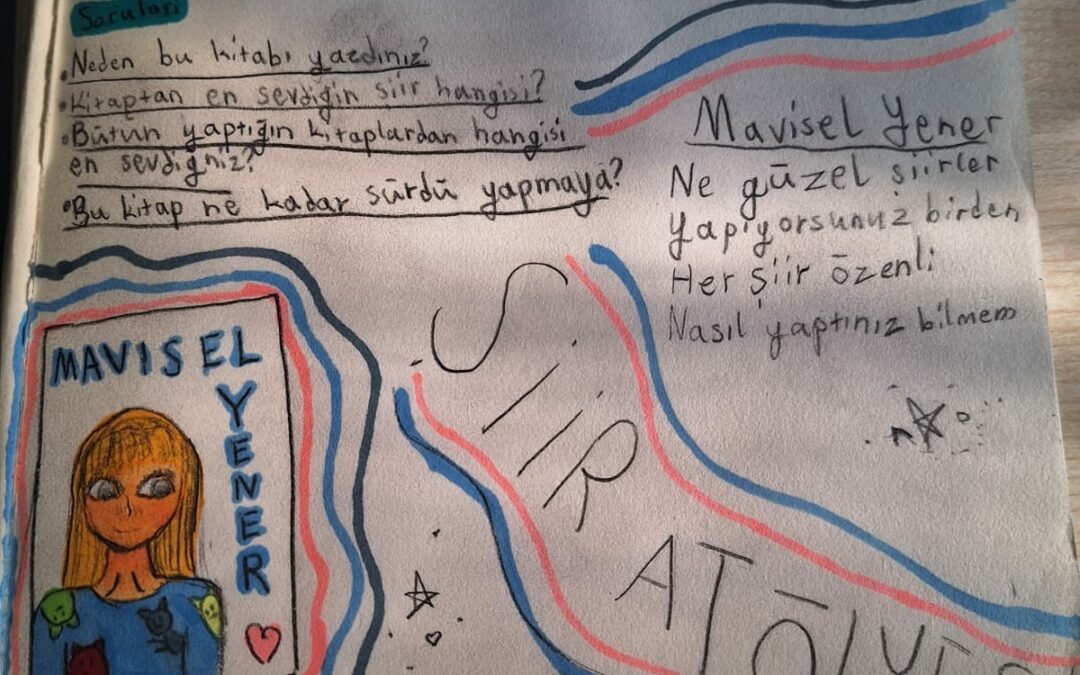 Soruları
• Neden bu kitabı yazdınız?
• Kitaptan en sevdiğin şiir hangisi?
• Bütün yaptığın kitaplardan hangisi
en sevdigniz?
• Bu kitap ne kadar sürdü yapmaya?
Mavisel Yener
Ne güzel şiirler
Yapıyorsunuz birden
Her şiir özenli
Nasıl yaptınız bilmem
MAVISEL
YENER
ŞİİR